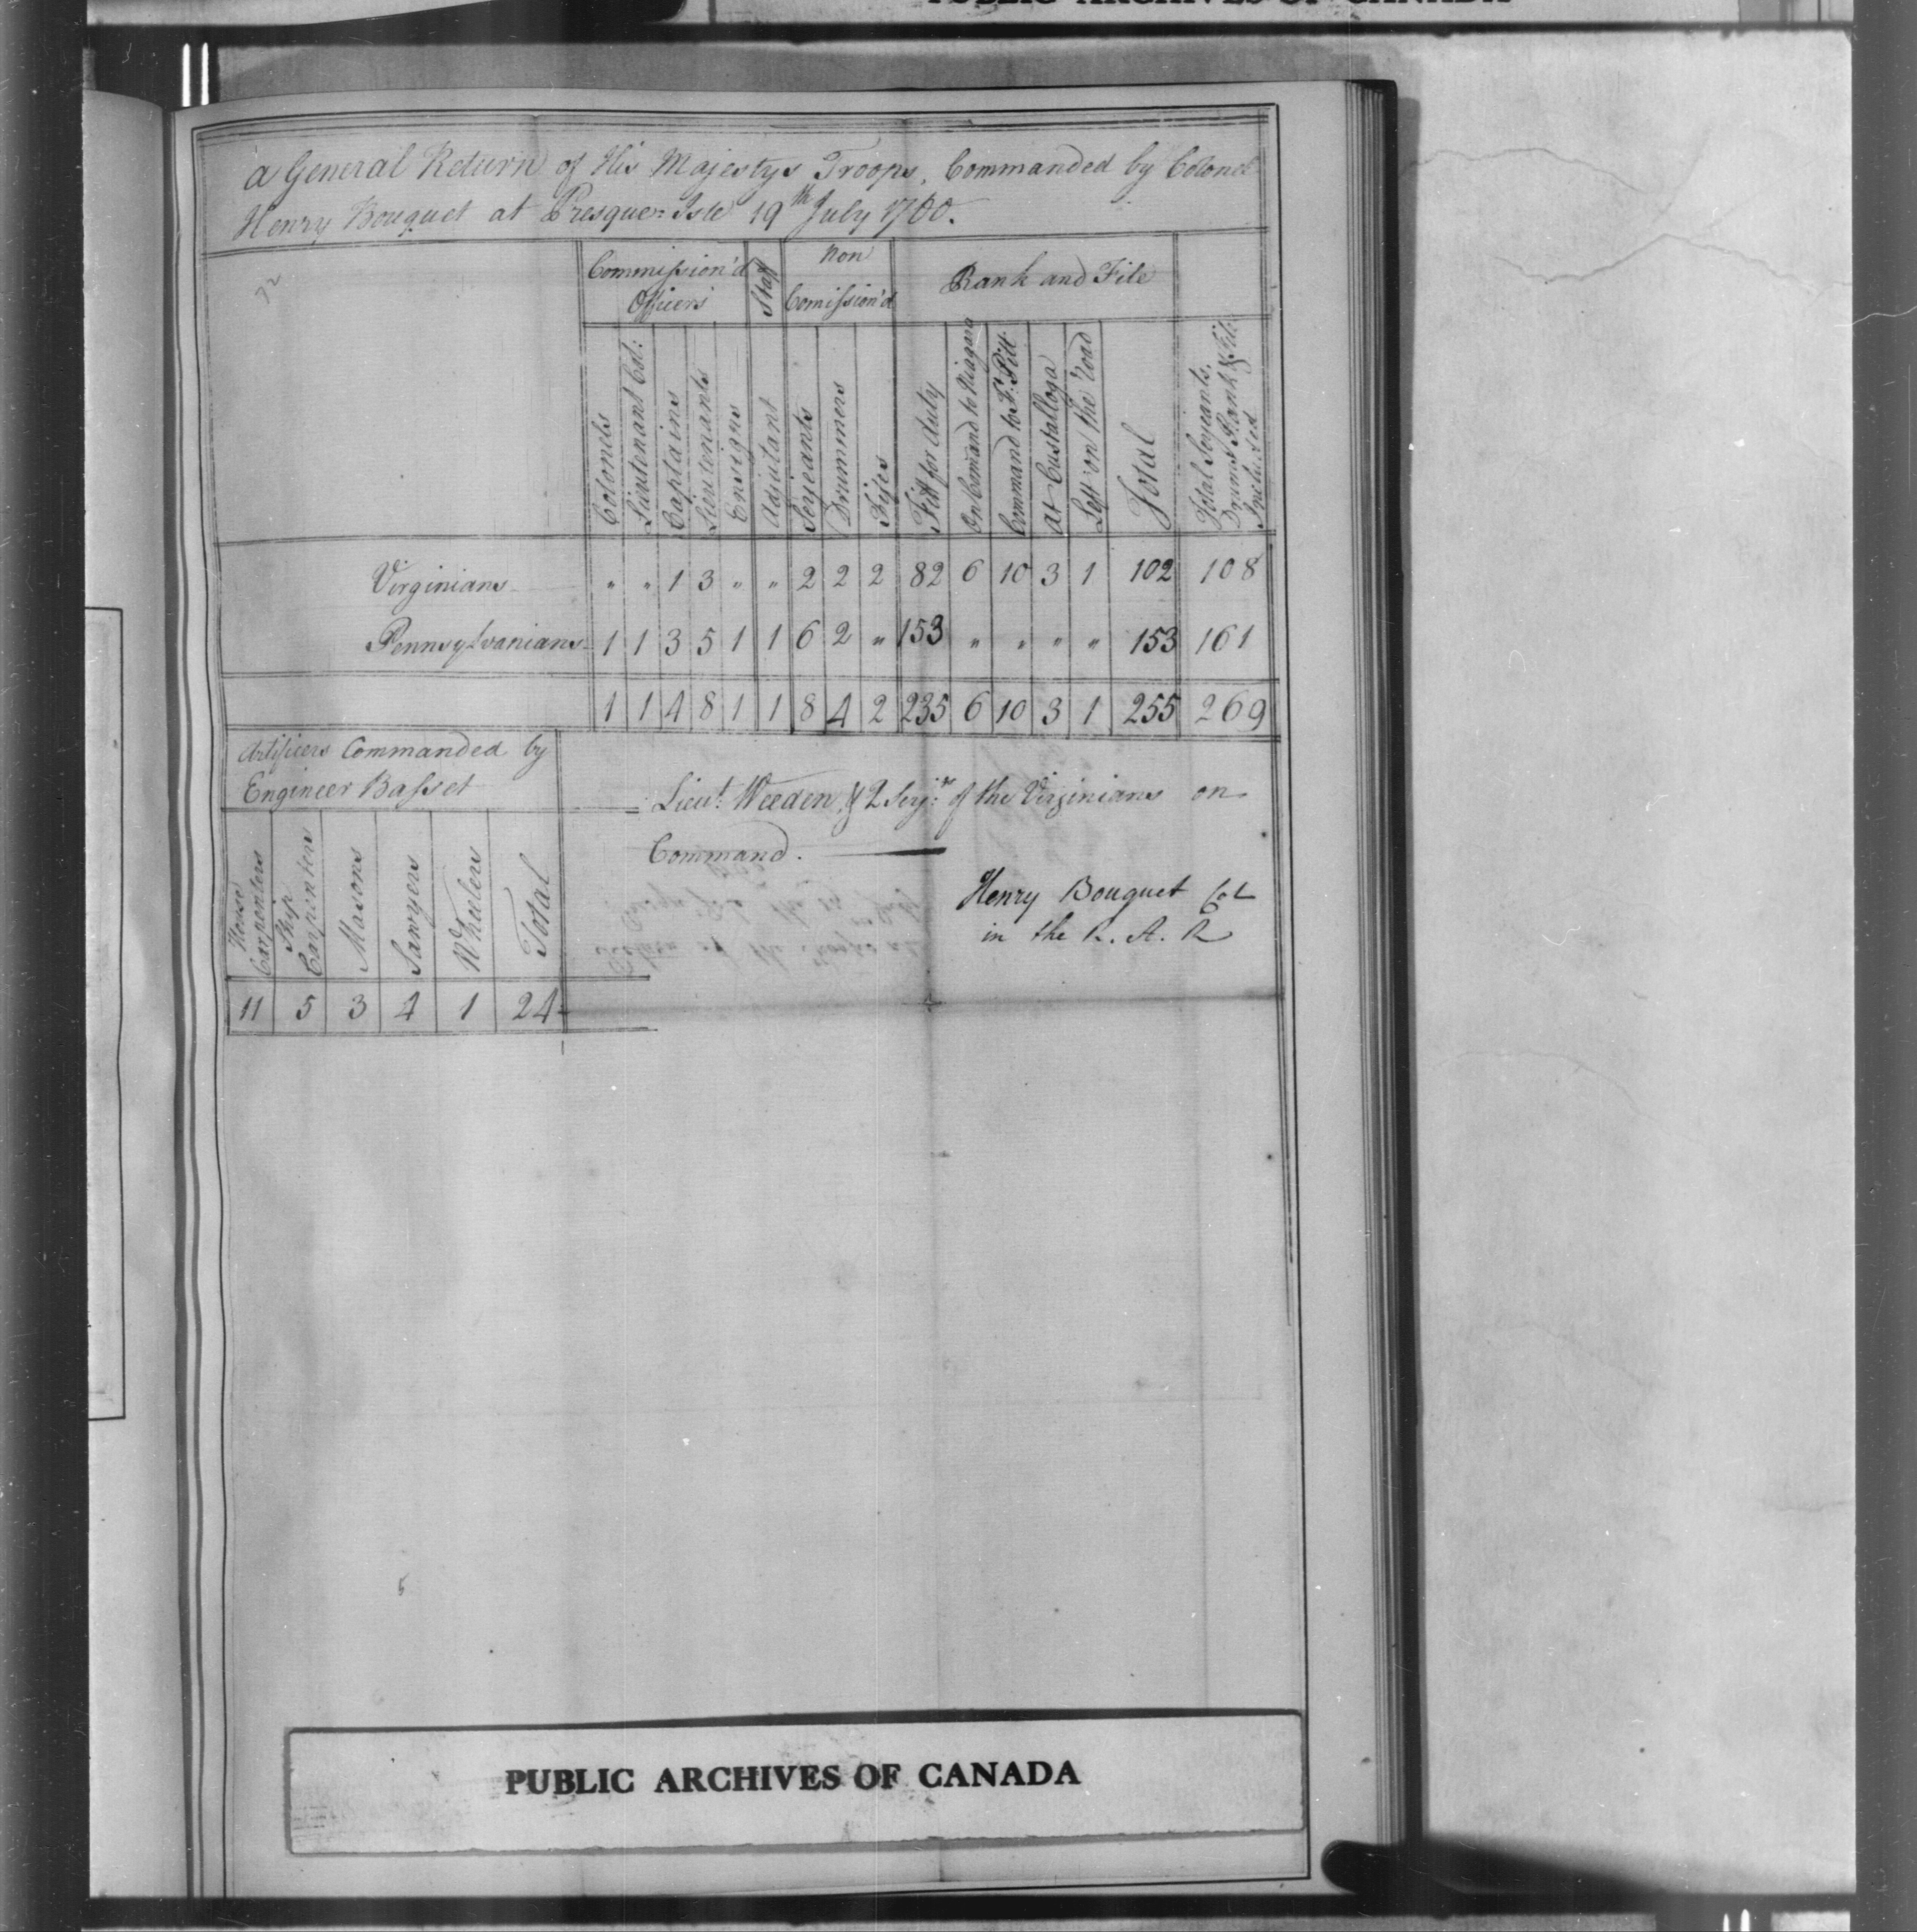 a General Return of His Majestys Troops, Commanded by Colonel
Henry Bouquet at Presque=Isle 19th July 1760.
72
Commission'd Officers
Staff
Non Comission'd
Rank and File
Colonels
Lieutenant Col:
Captains
Lieutenants
Ensigns
Adjutant
Serjeants
Drummers
Fifes
Fitt for duty
On Comand to Niagara
Command to Ft. Pitt
at Custalloga
Left on the Road
Total
Total Serjeants, Drums Rank & File Included
Virginians " " 1 3 " " 2 2 2 82 6 10 3 1 102 108
Pennsylvanians 1 1 3 5 1 1 6 2 " 153 " " " " 153 161
1 1 4 8 1 1 8 4 2 235 6 10 3 1 255 269
Artificers Commanded by
Engineer Basset
House Carpenters
Ship Carpenters
Masons
Sawyers
Wheelers
Total
11 5 3 4 1 24
Lieut. Weeden & 2 Serjts. of the Virginians on
Command.
Henry Bouquet Col
in the R. A. R
PUBLIC ARCHIVES OF CANADA